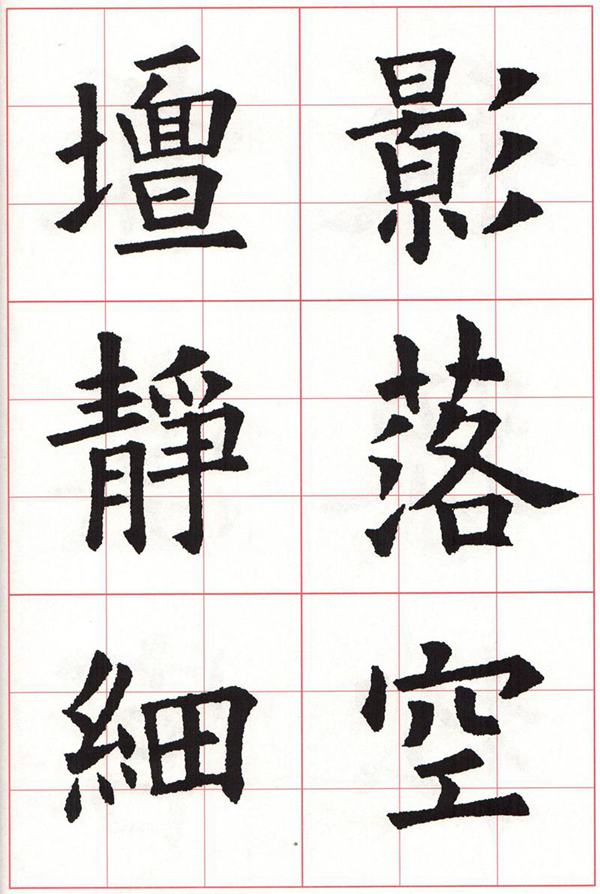 影落空
壇靜細